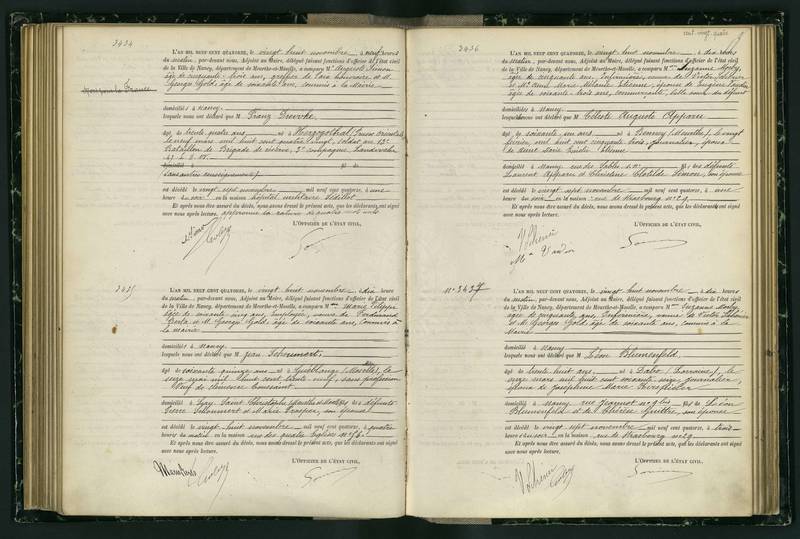 3434
L'AN MIL NEUF CENT QUATORZE, le vingt huit novembre à neuf heures
du matin, par-devant nous, Adjoint au Maire, délégué faisant fonctions d'officier de l'état civil
de la Ville de Nancy, département de Meurthe-et-Moselle, a comparu M. Auguste Simon
âgé de cinquante-trois ans, et M.
Georges Gold, âgé de soixante ans, commis à la Mairie
domiciliés à Nancy
lesquels nous ont déclaré que M. Franz
âgé de trente quatre ans né à
le neuf mars mil huit cent quatre vingt, soldat au
Bataillon de Brigade de réserve, compagnie Landwehr
(sans autres renseignements)
est décédé le vingt sept novembre mil neuf cent quatorze, à une
heure du soir en la maison hôpital militaire Sédillot
Et après nous être assuré du décès, nous avons dressé le présent acte, que les déclarants ont signé
avec nous après lecture.
L'OFFICIER DE L'ÉTAT CIVIL,
3435
L'AN MIL NEUF CENT QUATORZE, le vingt huit novembre à dix heures
du matin, par-devant nous, Adjoint au Maire, délégué faisant fonctions d'officier de l'état civil
de la Ville de Nancy, département de Meurthe-et-Moselle, a comparu Mme Marie
âgée de soixante cinq ans, employée, veuve de Ferdinand
et M. Georges Gold âgé de soixante ans, commis à
la mairie
domiciliés à Nancy
lesquels nous ont déclaré que M. Jean Schoumert
âgé de soixante quinze ans né à Guéblange (Moselle), le
seize mai mil huit cent trente neuf, sans profession
veuf de Clémence Toussaint
domicilié à Lay Saint Christophe (Meurthe et Moselle) fils des défunts
Pierre Schoumert et Marie son épouse
est décédé le vingt huit novembre mil neuf cent quatorze, à quatre
heures du matin en la maison rue des quatre Églises n° 56
Et après nous être assuré du décès, nous avons dressé le présent acte, que les déclarants ont signé
avec nous après lecture.
L'OFFICIER DE L'ÉTAT CIVIL,
3436
L'AN MIL NEUF CENT QUATORZE, le vingt huit novembre à dix heures
du matin, par-devant nous, Adjoint au Maire, délégué faisant fonctions d'officier de l'état civil
de la Ville de Nancy, département de Meurthe-et-Moselle, a comparu Mme Suzanne
âgée de cinquante ans, Infirmière, veuve de Victor
et Mme Marie Mélanie Etienne, épouse de Eugène
âgée de soixante trois ans, commerçante, belle soeur du défunt
domiciliés à Nancy
lesquels nous ont déclaré que M. Céleste Auguste Apparu
âgé de soixante un ans né à Benney (Meurthe), le vingt
février mil huit cent cinquante trois, journalier, époux
de Anne Marie Etienne
domicilié à Nancy, rue des Sables fils des défunts
Laurent Apparu et Christine Clotilde Simon, son épouse
est décédé le vingt sept novembre mil neuf cent quatorze, à une
heure du soir en la maison rue de Strasbourg n° 29
Et après nous être assuré du décès, nous avons dressé le présent acte, que les déclarants ont signé
avec nous après lecture.
L'OFFICIER DE L'ÉTAT CIVIL,
N° 3437
L'AN MIL NEUF CENT QUATORZE, le vingt huit novembre à dix heures
du matin, par-devant nous, Adjoint au Maire, délégué faisant fonctions d'officier de l'état civil
de la Ville de Nancy, département de Meurthe-et-Moselle, a comparu Mme Suzanne
âgée de cinquante ans, Infirmière, veuve de Victor
et M. Georges Gold âgé de soixante ans, commis à la
Mairie
domiciliés à Nancy
lesquels nous ont déclaré que M. Léon Blumenfeld
âgé de trente huit ans né à Dabo (Lorraine), le
seize mars mil huit cent soixante seize, journalier,
époux de Joséphine Marie
domicilié à Nancy rue Jeannot n° 9 bis fils de Léon
Blumenfeld et de Thérèse son épouse
est décédé le vingt sept novembre mil neuf cent quatorze, à trois
heures du soir en la maison rue de Strasbourg n° 29
Et après nous être assuré du décès, nous avons dressé le présent acte, que les déclarants ont signé
avec nous après lecture.
L'OFFICIER DE L'ÉTAT CIVIL,